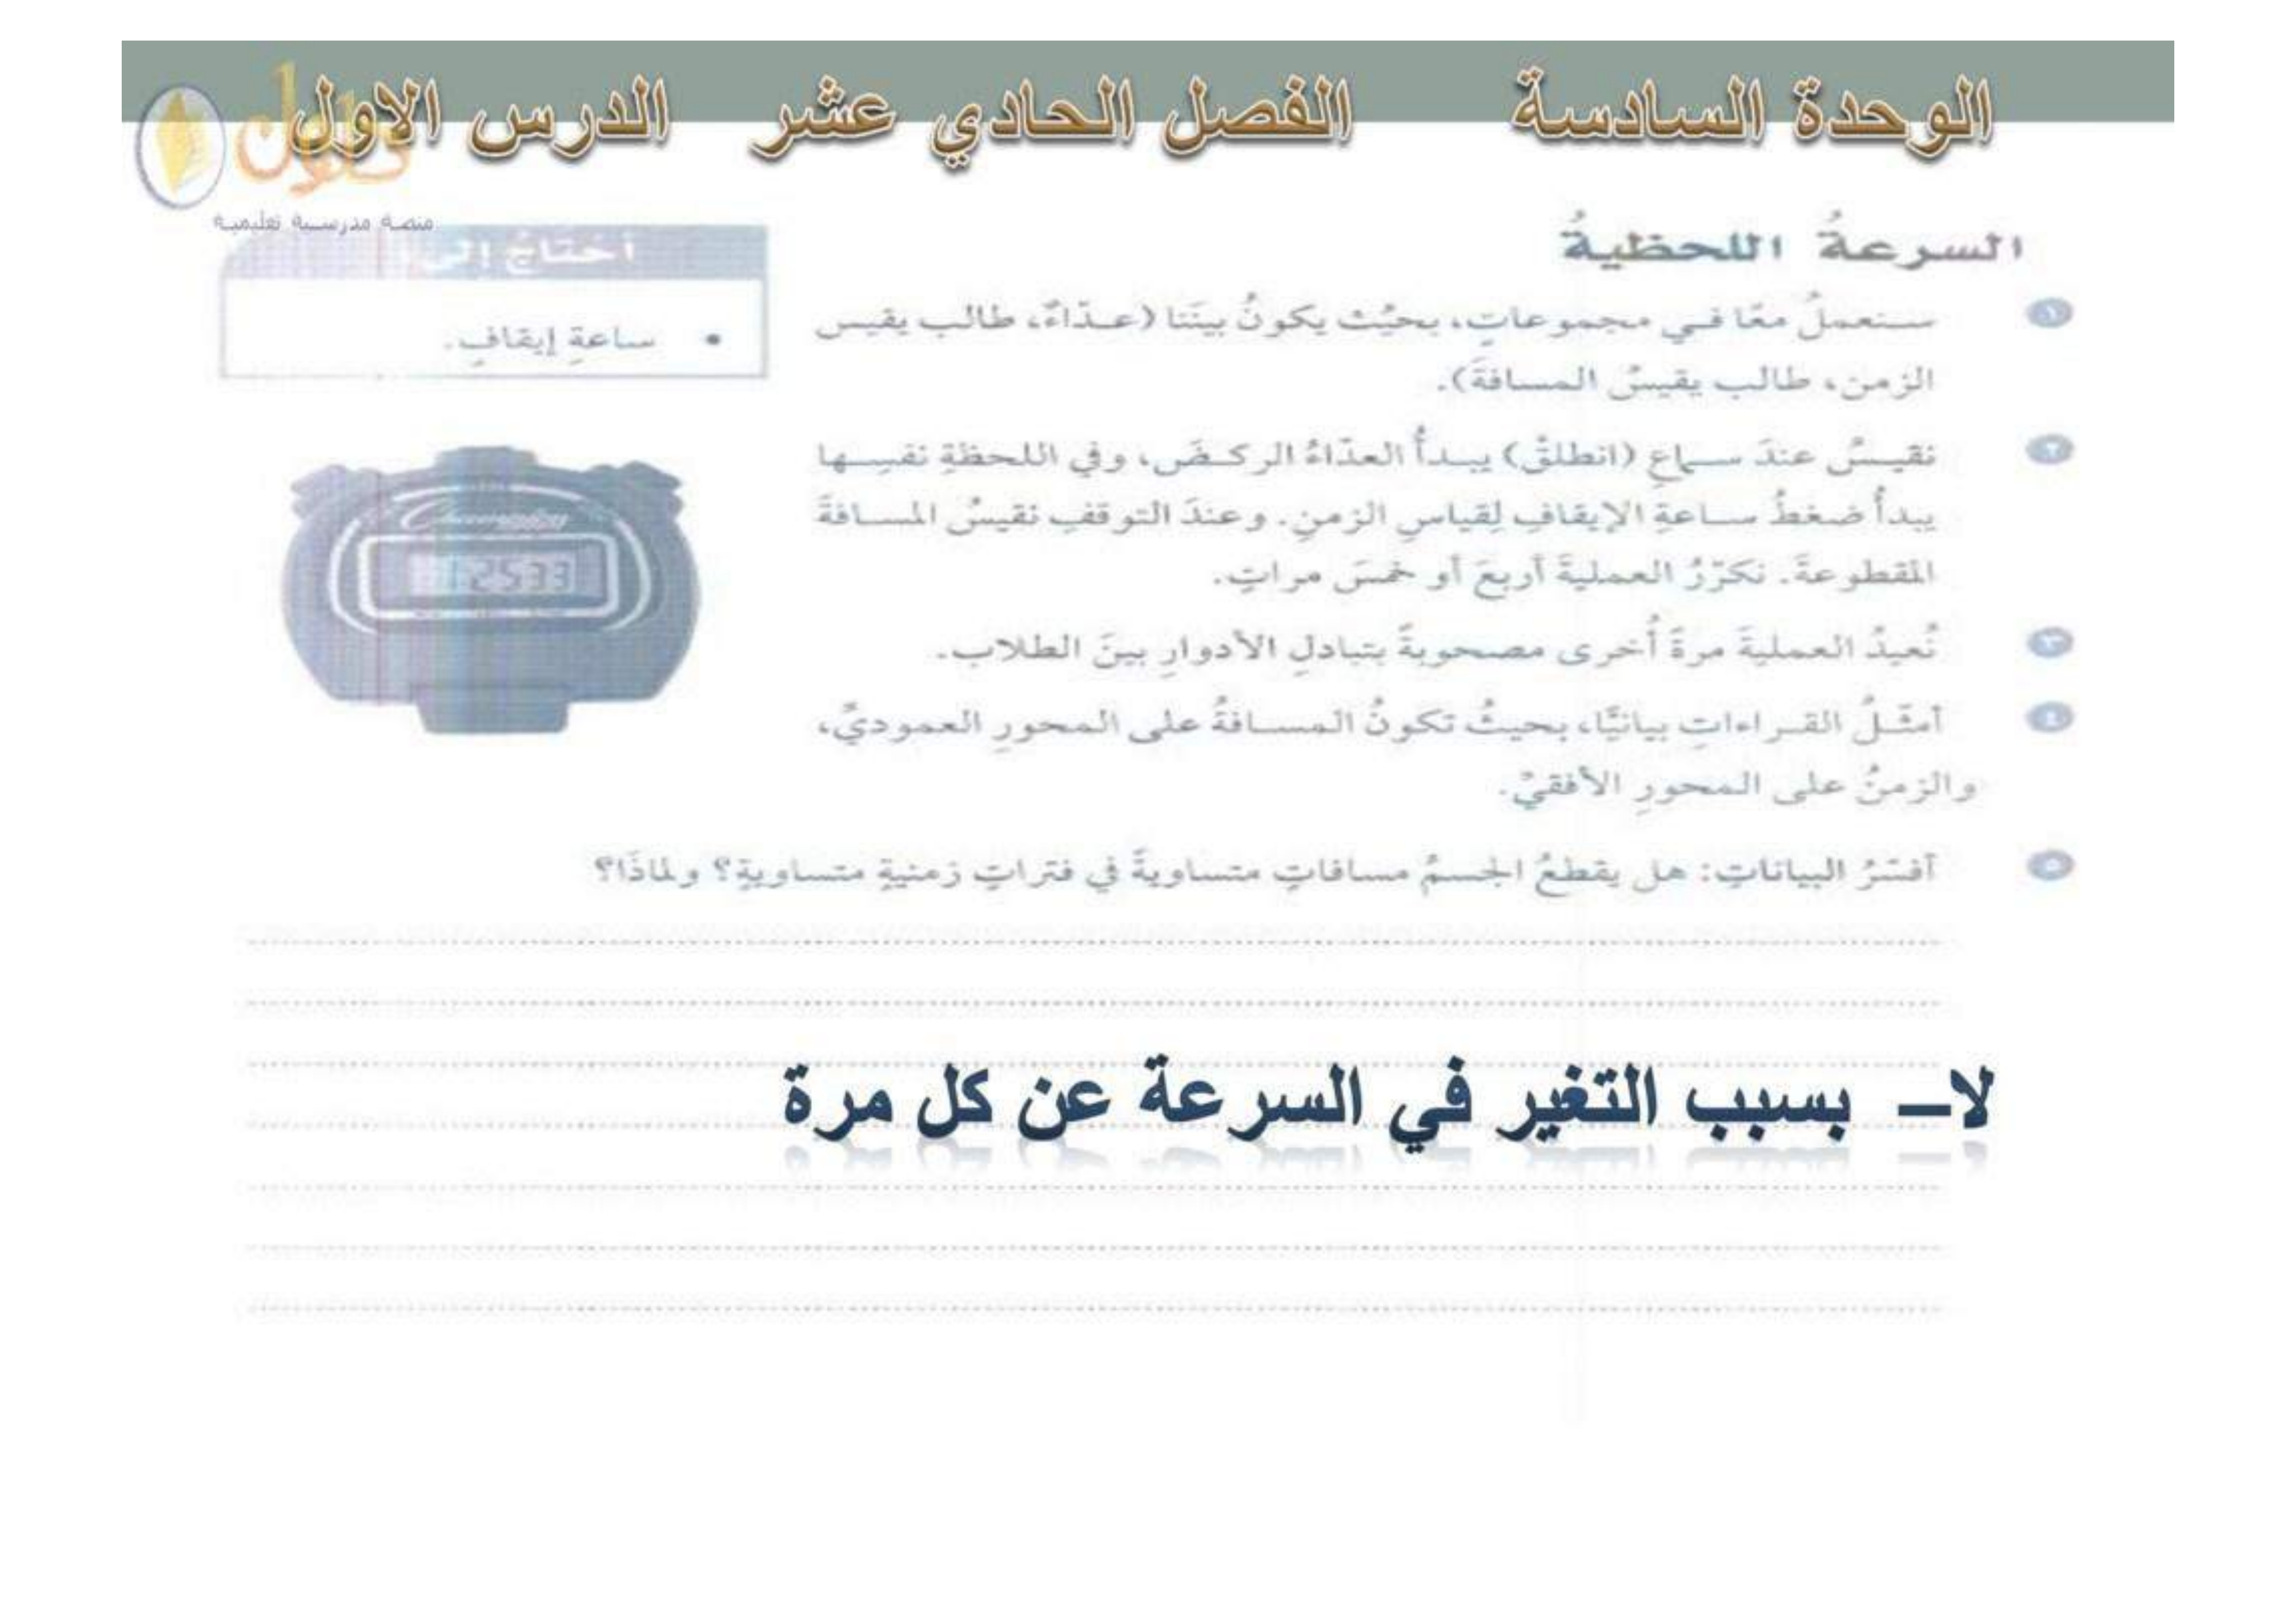 الوحدة السادسة الفصل الحادي عشر الدرس الاول
حلول
منصة مدرسية تعليمية
السرعةُ اللحظيةُ
أحتاجُ إلى:
• ساعةِ إيقافٍ.
١ سنعملُ معًا في مجموعاتٍ، بحيْث يكونُ بينَنا (عدّاءٌ، طالب يقيس
الزمن، طالب يقيسُ المسافةَ).
٢ نقيسُ عندَ سماعِ (انطلقْ) يبدأُ العدّاءُ الركضَ، وفي اللحظةِ نفسِها
يبدأُ ضغطُ ساعةِ الإيقافِ لِقياسِ الزمنِ. وعندَ التوقفِ نقيسُ المسافةَ
المقطوعةَ. نكرّرُ العمليةَ أربعَ أو خمسَ مراتٍ.
٣ نُعيدُ العمليةَ مرةً أُخرى مصحوبةً بتبادلِ الأدوارِ بينَ الطلاب.
٤ أمثّلُ القراءاتِ بيانيًّا، بحيثُ تكونُ المسافةُ على المحورِ العموديِّ،
والزمنُ على المحورِ الأفقيِّ.
٥ أفسّرُ البياناتِ: هل يقطعُ الجسمُ مسافاتٍ متساويةً في فتراتٍ زمنيةٍ متساويةٍ؟ ولماذَا؟
لا– بسبب التغير في السرعة عن كل مرة